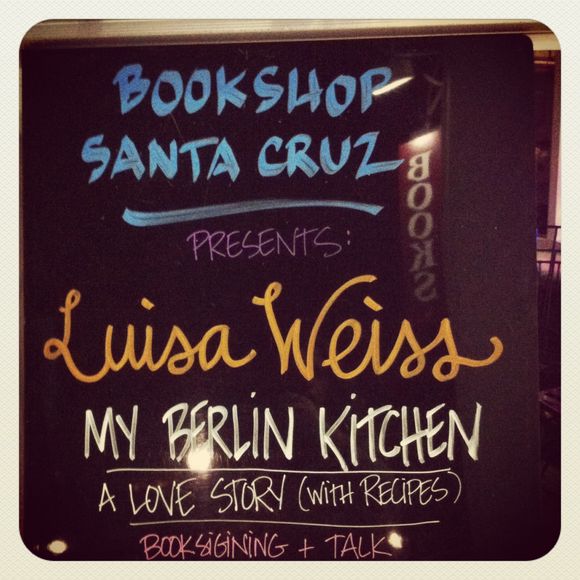 BOOKSHOP
SANTA CRUZ
PRESENTS:
Luisa Weiss
MY BERLIN KITCHEN
A LOVE STORY (WITH RECIPES)
BOOKSIGINING + TALK
BOOKS